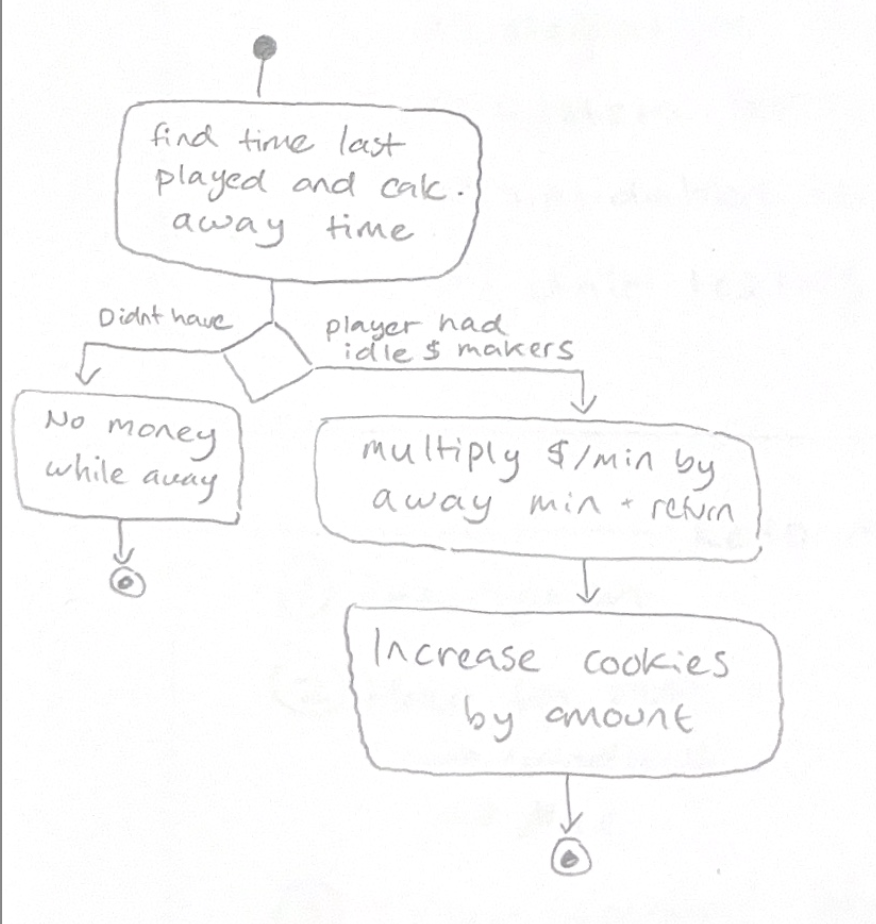 find time last
played and calc.
away time
Didnt have
player had
idle $ makers
No money
while away
multiply $/min by
away min + return
Increase cookies
by amount